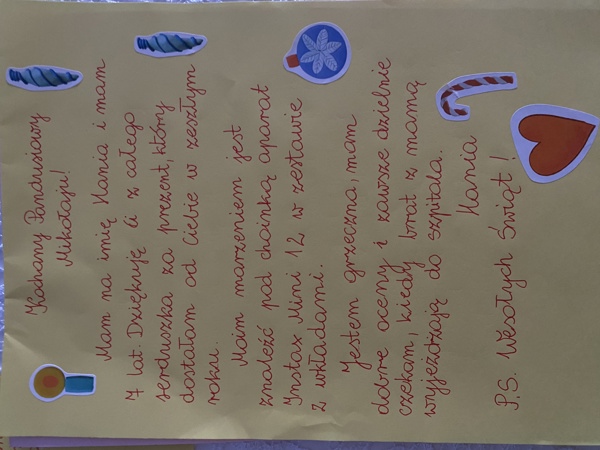 Kochany Pandusiowy
Mikołaju!
Mam na imię Hania i mam
7 lat. Dziękuję Ci z całego
serduszka za prezent, który
dostałam od Ciebie w zeszłym
roku.
Moim marzeniem jest
znaleźć pod choinką aparat
Instax Mini 12 w zestawie
z wkładami.
Jestem grzeczna, mam
dobre oceny i zawsze dzielnie
czekam, kiedy brat z mamą
wyjeżdżają do szpitala.
Hania
P.S. Wesołych Świąt!